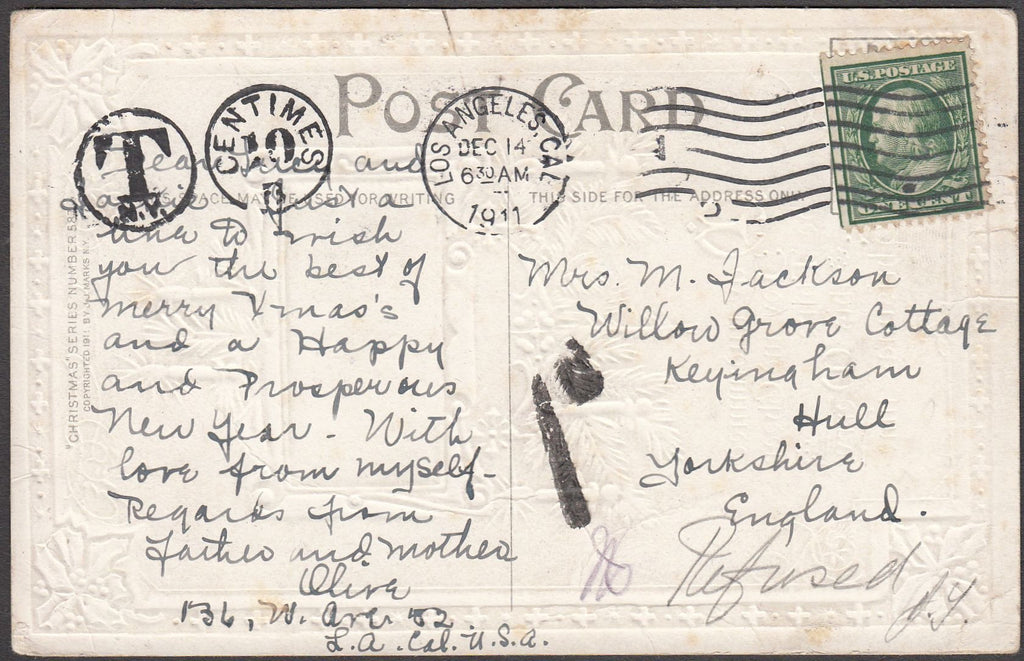 POST CARD
U.S. POSTAGE
ONE CENT
T
N.Y.
CENTIMES
10
LOS ANGELES, CAL
DEC 14
6 30 AM
1911
SPACE MAY BE USED FOR WRITING
THIS SIDE FOR THE ADDRESS ONLY
"CHRISTMAS" SERIES NUMBER
COPYRIGHTED 1911 BY J. MARKS N.Y.
Dear and
Just a
line to wish
you the best of
merry Xmas's
and a Happy
and Prosperous
New Year - With
love from myself -
Regards from
Father and mother
Olive
136, W. Ave 52
L.A. Cal. U.S.A.
Mrs. M. Jackson
Willow Grove Cottage
Keyingham
Hull
Yorkshire
England.
1D
Refused